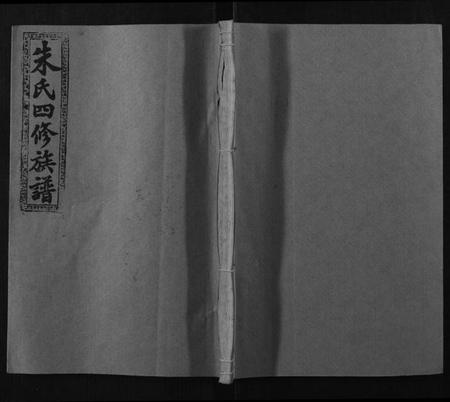 朱氏四修族譜